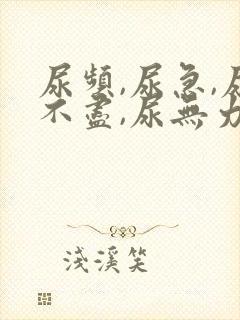 尿頻,尿急,尿
不盡,尿無力
淺溪笑